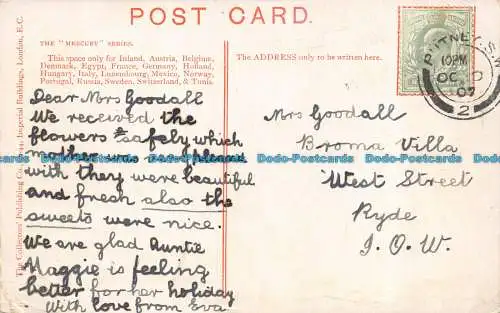 POST CARD.
THE "MERCURY" SERIES.
This space only for Inland, Austria, Belgium,
Denmark, Egypt, France, Germany, Holland,
Hungary, Italy, Luxembourg, Mexico, Norway,
Portugal, Russia, Sweden, Switzerland, & Tunis.
The ADDRESS only to be written here.
The Collectors' Publishing Co. Imperial Buildings, London, E.C.
Dear Mrs Goodall
We received the
flowers safely which
mother was very pleased
with they were beautiful
and fresh also the
sweets were nice.
We are glad Auntie
Maggie is feeling
better for her holiday
With love from Eva
Mrs Goodall
Broma Villa
West Street
Ryde
I.O.W.
PUTNEY. S.W
10PM
OC
07
2
Dodo-Postcards Dodo-Postcards Dodo-Postcards Dodo-Postcards Dodo-Postcards